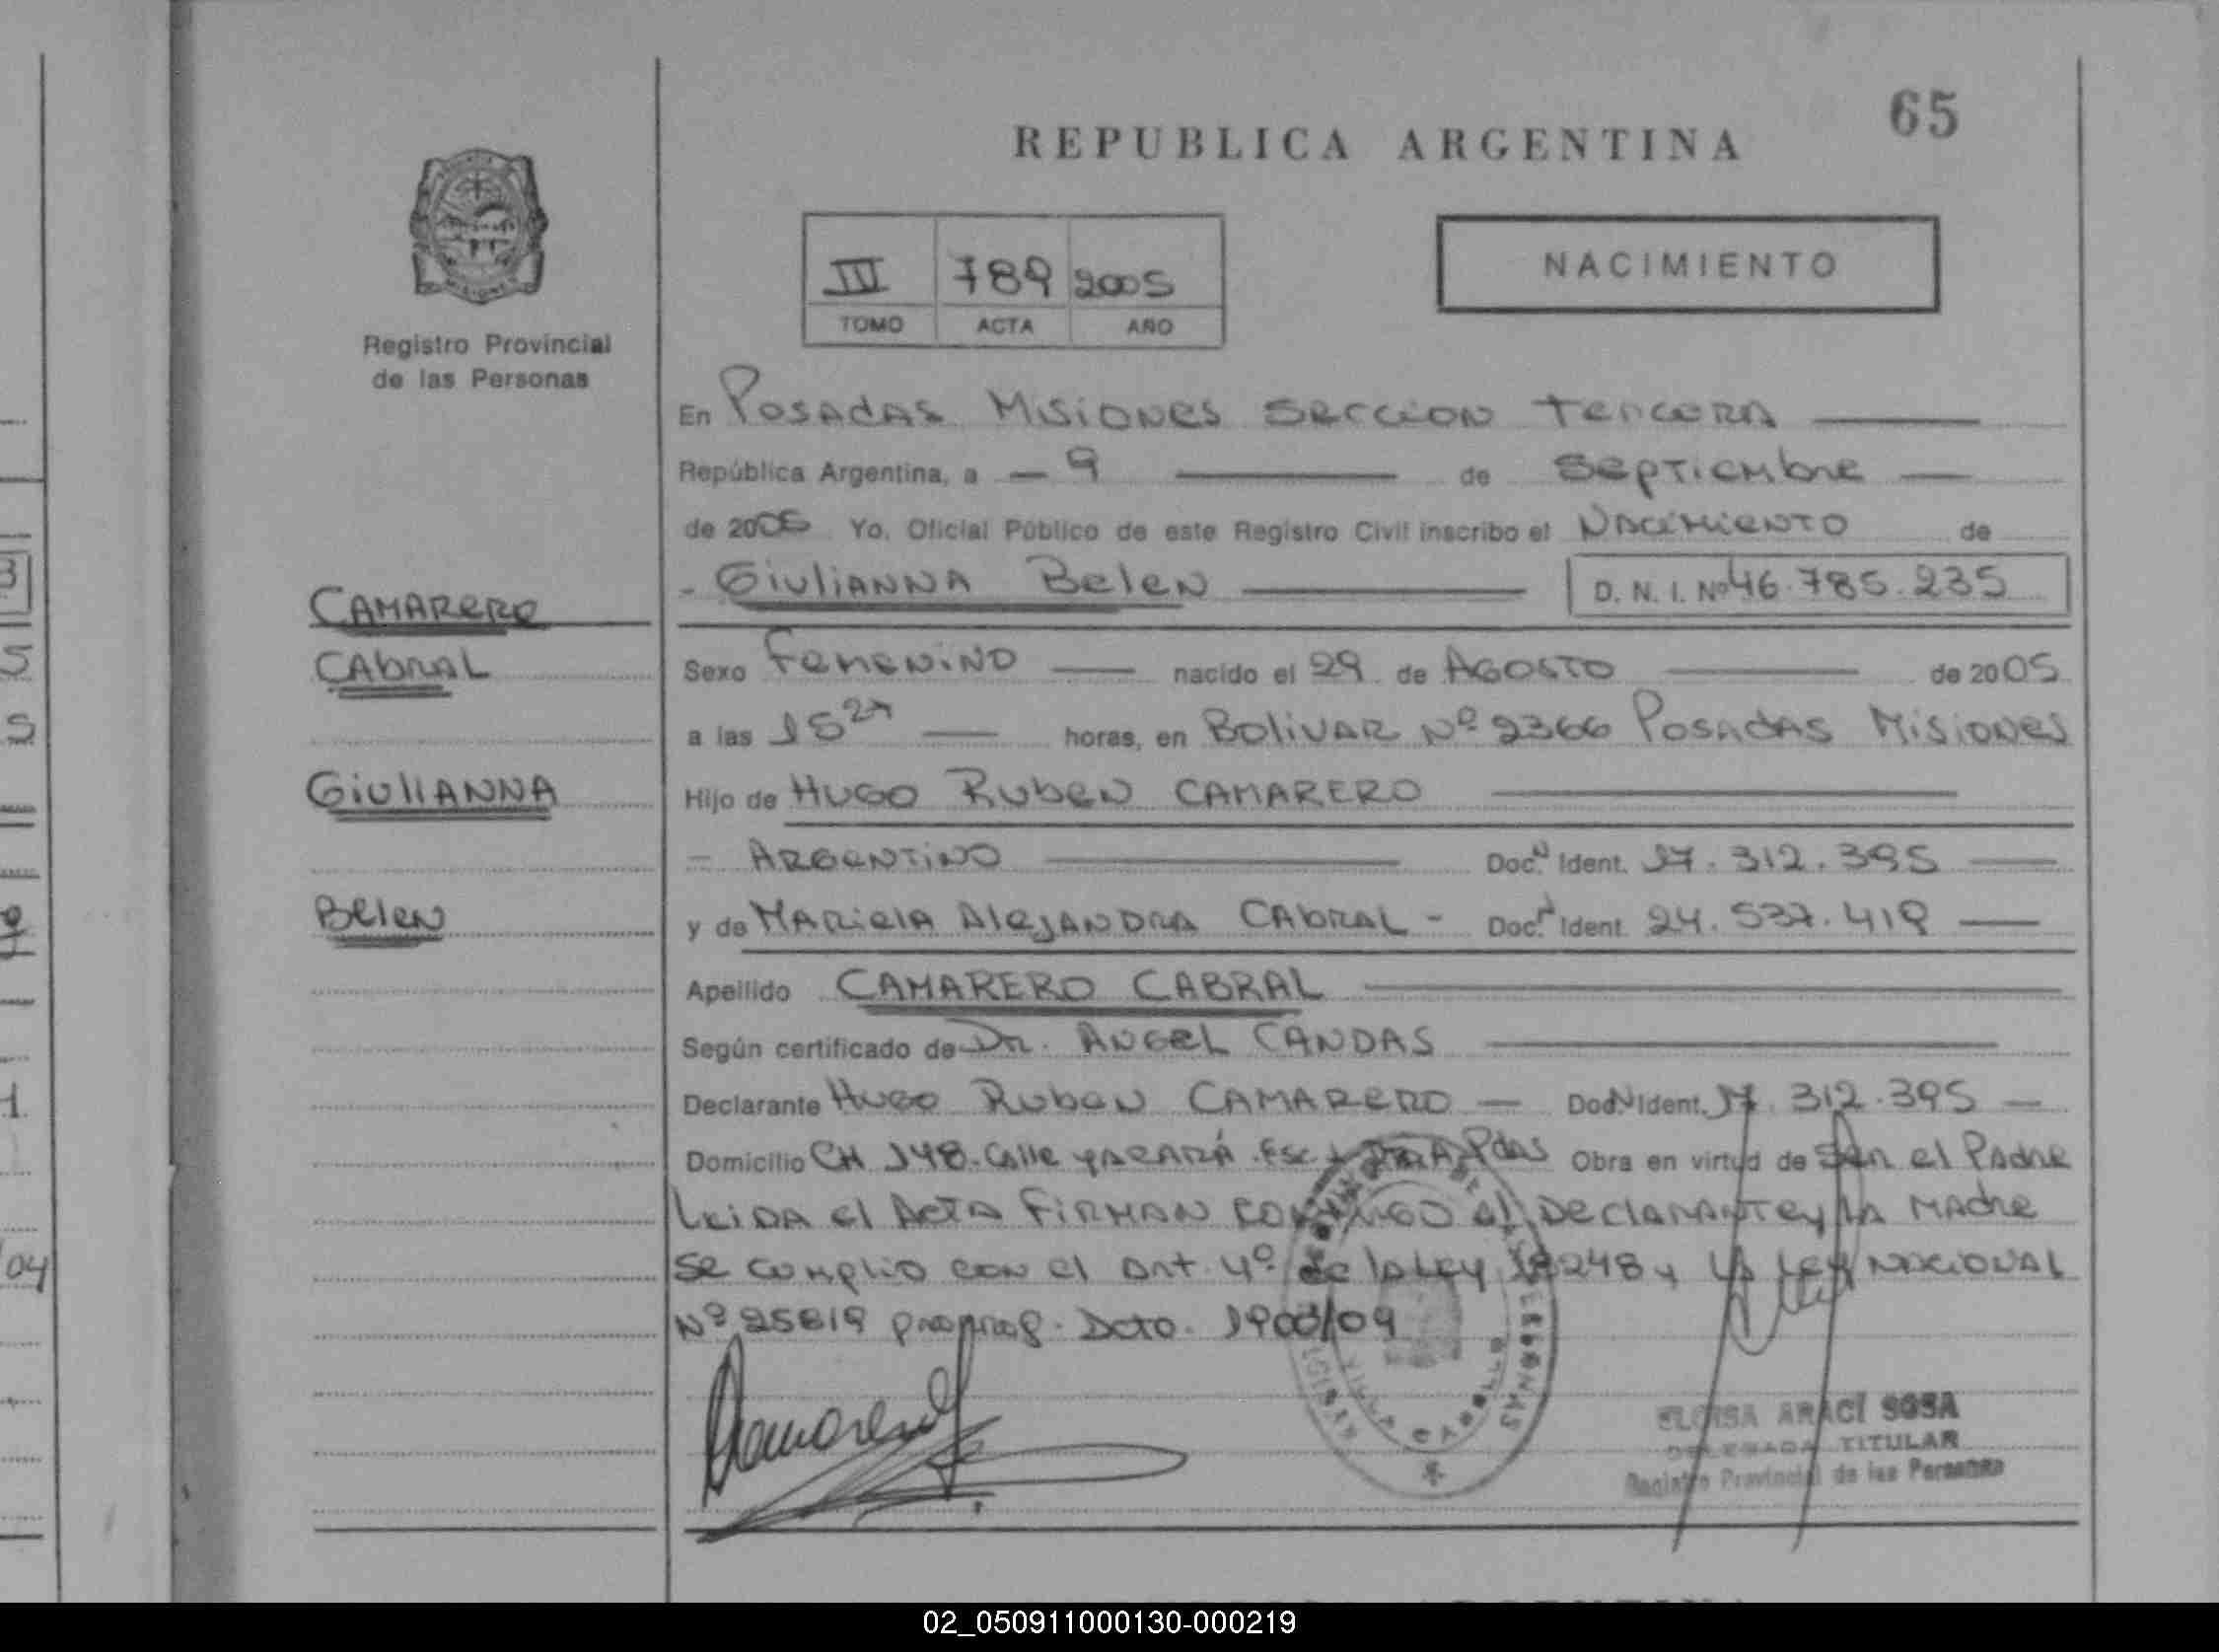 65
REPUBLICA ARGENTINA
III 789 2005
TOMO ACTA AÑO
NACIMIENTO
Registro Provincial
de las Personas
En Posadas Misiones Seccion Tercera
República Argentina, a - 9 de Septiembre
de 2005 Yo, Oficial Público de este Registro Civil inscribo el Nacimiento de
- Giulianna Belen D. N. I. Nº 46.785.235
CAMARERO
CAbRAL
Sexo Femenino nacido el 29 de AGOSTO de 2005
a las horas, en Bolivar Nº 2366 Posadas Misiones
GiuliANNA
Hijo de HUGO Ruben CAMARERO
- ARGENTINO Doc. Ident. 17.312.395
Belen
y de MARielA AlejANDRA CAbRAL - Doc. Ident. 24.537.419
Apellido CAMARERO CABRAL
Según certificado de Dr. ANGEL CANDAS
Declarante Hugo Ruben CAMARERO - Doc N Ident. 17.312.395 -
Domicilio CH 148. Calle Pdas Obra en virtud de Ser el Padre
Leida el Acta FIRMAN CONMIGO el Declarante y la Madre
Se cumplio con el Art 4º de la Ley 18248 y la Ley NACIONAL
Nº 25819 prorrog. Dcto.
ELOISA ARACI SOSA
DELEGADA TITULAR
Registro Provincial de las Personas
02_050911000130-000219